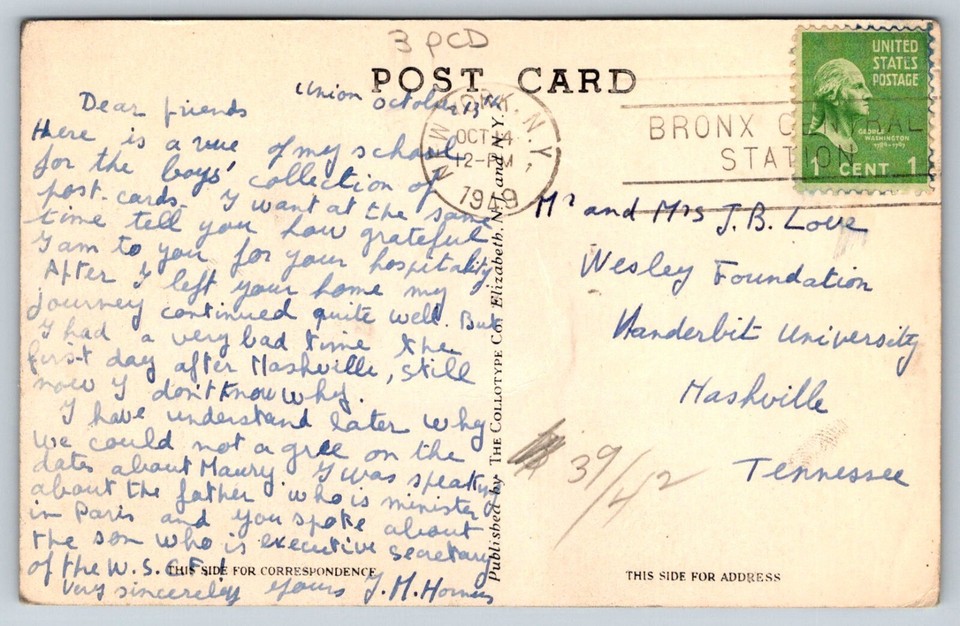 3 PCD
POST CARD
UNITED
STATES
POSTAGE
GEORGE
WASHINGTON
1789-1797
1 CENT 1
NEW YORK, N.Y.
OCT 14
12-PM
1949
BRONX CENTRAL
STATION
Union October 13th
Dear friends
Here is a view of my school
for the boys' collection of
post-cards. I want at the same
time tell you how grateful
I am to you for your hospitality
After I left your home my
journey continued quite well. But
I had a very bad time the
first day after Nashville, still
now I don't know why.
I have understand later why
we could not agree on the
dates about Maury. I was speaking
about the father who is minister
in Paris and you spoke about
the son who is executive secretary
of the W. S. C. F.
Very sincerely yours J. M.
THIS SIDE FOR CORRESPONDENCE
Published by THE COLLOTYPE CO., Elizabeth, N.J. and N.Y.
Mr and Mrs J. B. Love
Wesley Foundation
Vanderbit University
Nashville
Tennessee
39/42
THIS SIDE FOR ADDRESS